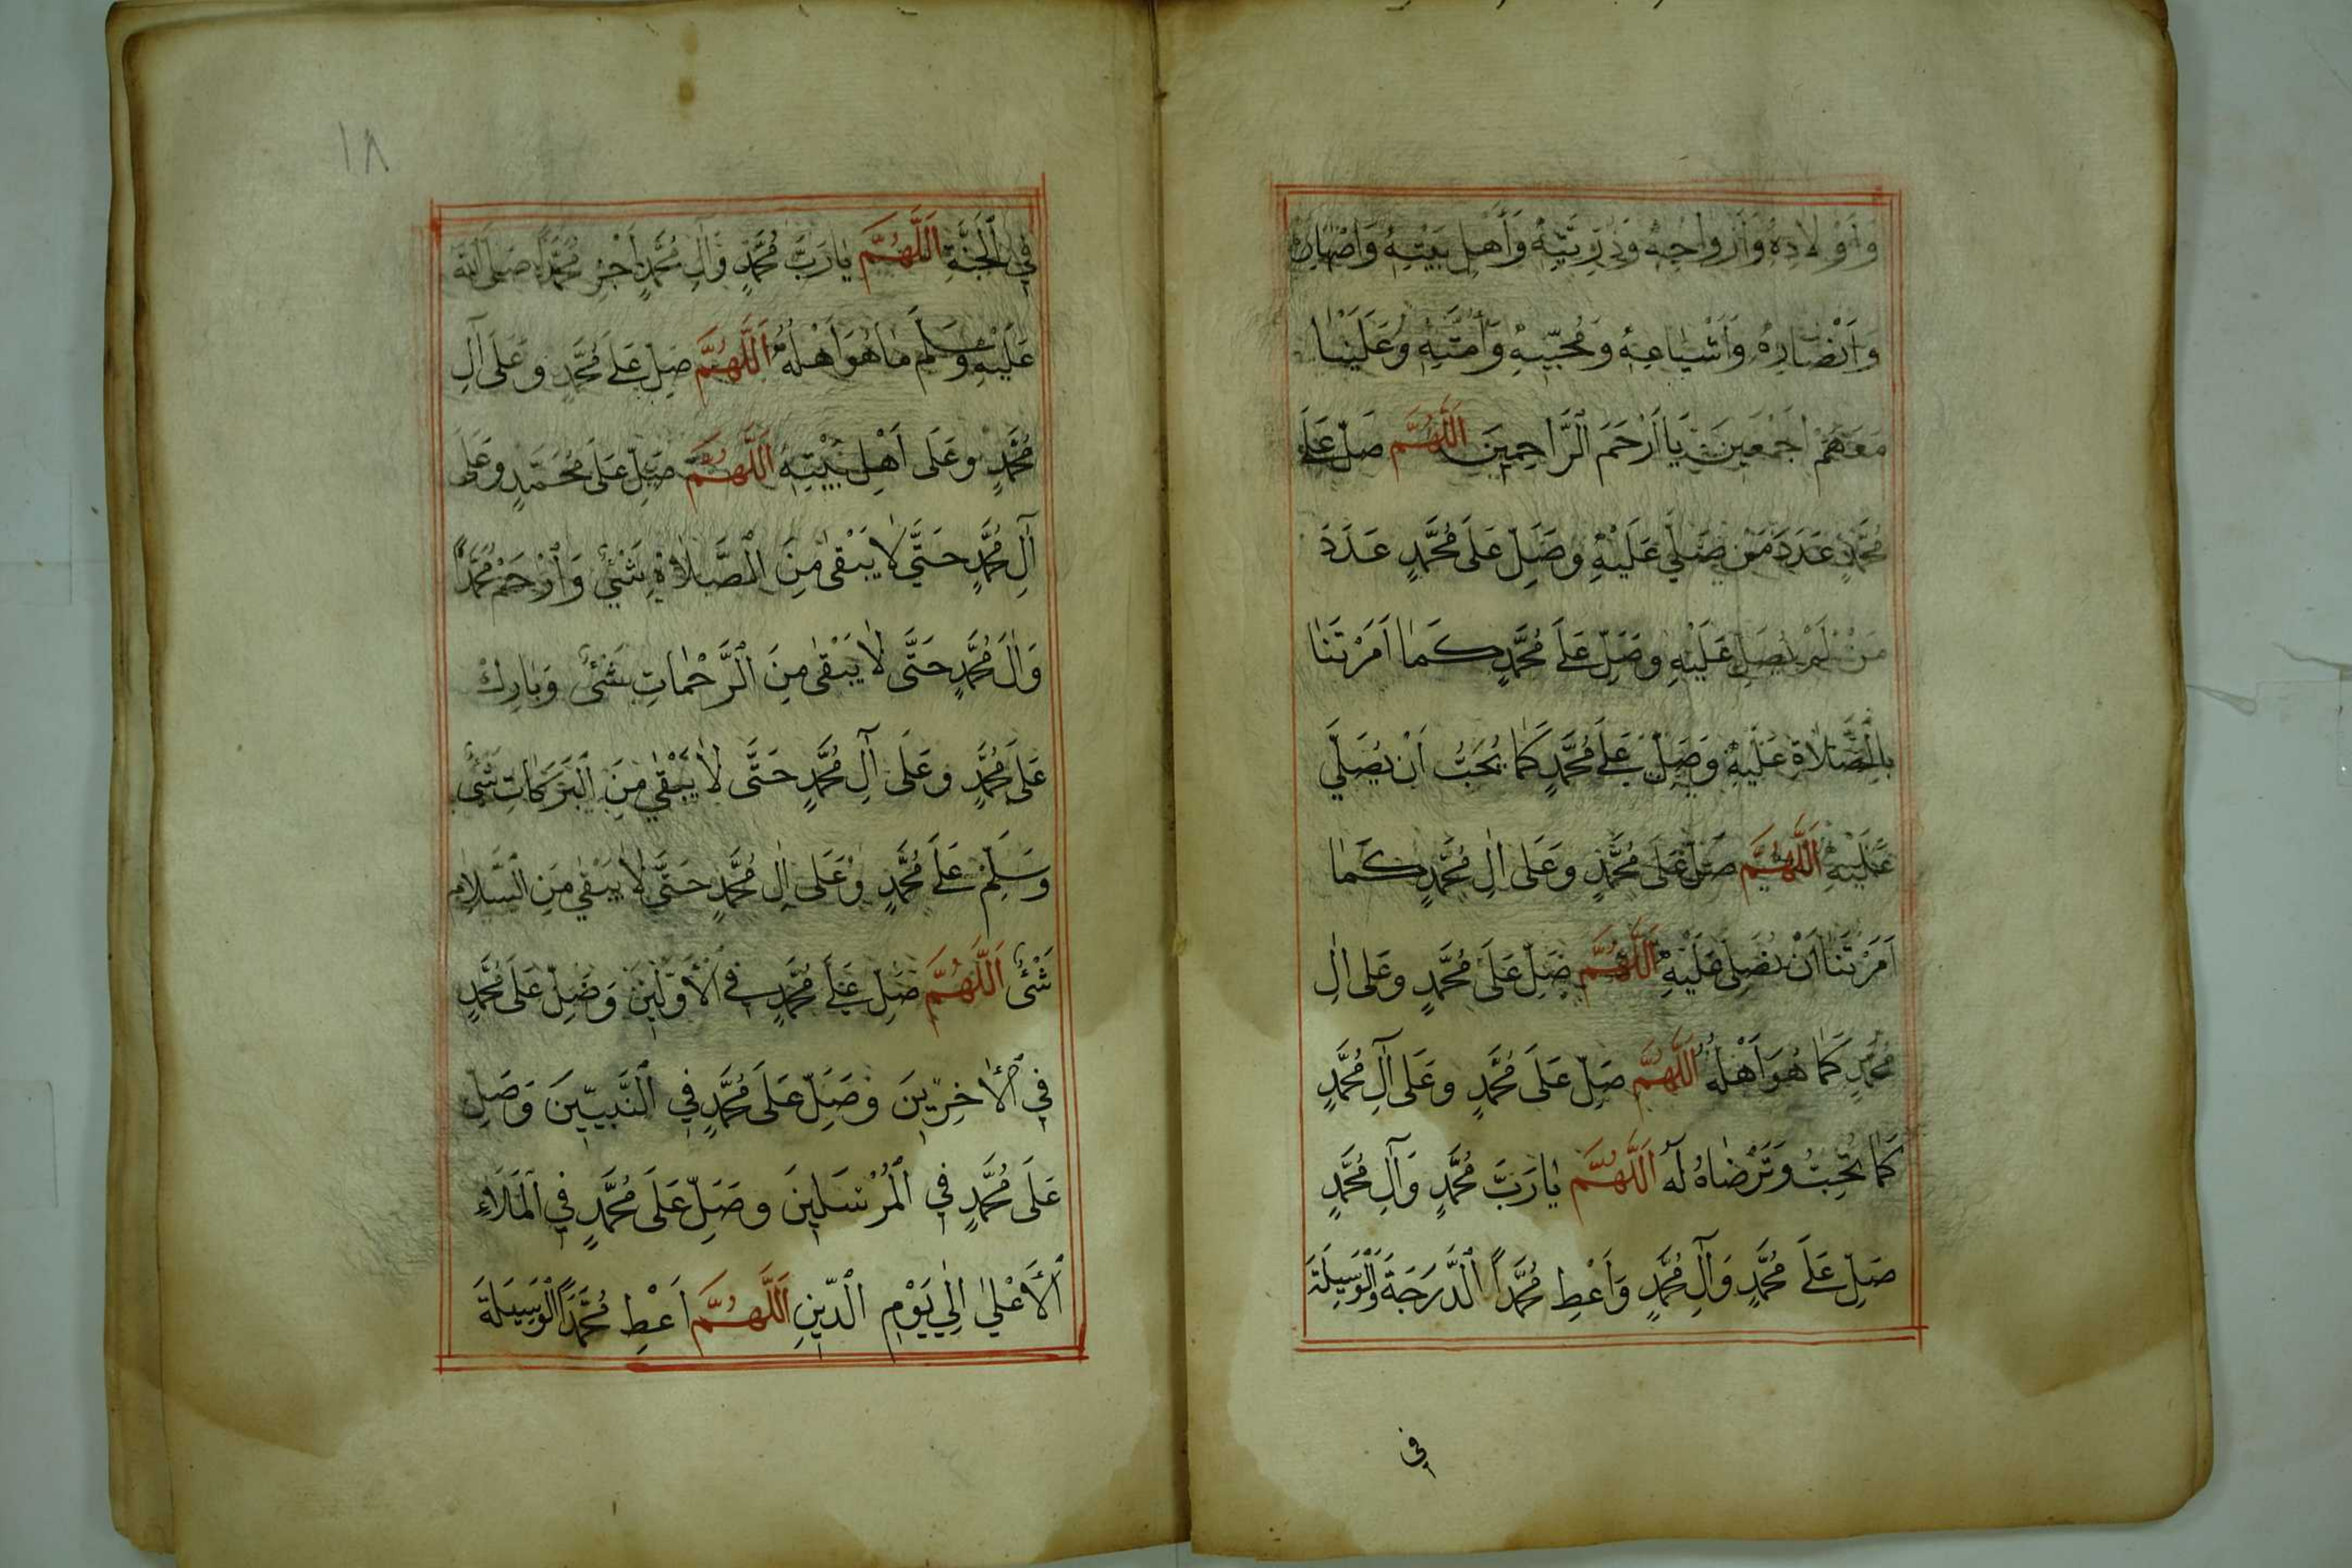 وَأَوْلَادِهِ وَأَزْوَاجِهِ وَذُرِّيَّتِهِ وَأَهْلِ بَيْتِهِ وَأَصْهَارِهِ
وَأَنْصَارِهِ وَأَشْيَاعِهِ وَمُحِبِّيهِ وَأُمَّتِهِ وَعَلَيْنَا
مَعَهُمْ أَجْمَعِينَ يَا أَرْحَمَ الرَّاحِمِينَ اَللَّهُمَّ صَلِّ عَلَى
مُحَمَّدٍ عَدَدَ مَنْ صَلَّى عَلَيْهِ وَصَلِّ عَلَى مُحَمَّدٍ عَدَدَ
مَنْ لَمْ يُصَلِّ عَلَيْهِ وَصَلِّ عَلَى مُحَمَّدٍ كَمَا اَمَرْتَنَا
بِالصَّلَاةِ عَلَيْهِ وَصَلِّ عَلَى مُحَمَّدٍ كَمَا يُحِبُّ اَنْ يُصَلَّى
عَلَيْهِ اَللَّهُمَّ صَلِّ عَلَى مُحَمَّدٍ وَعَلَى اٰلِ مُحَمَّدٍ كَمَا
اَمَرْتَنَا اَنْ نُصَلِّيَ عَلَيْهِ اَللَّهُمَّ صَلِّ عَلَى مُحَمَّدٍ وَعَلَى اٰلِ
مُحَمَّدٍ كَمَا هُوَ اَهْلُهُ اَللَّهُمَّ صَلِّ عَلَى مُحَمَّدٍ وَعَلَى آلِ مُحَمَّدٍ
كَمَا تُحِبُّ وَتَرْضَاهُ لَهُ اَللَّهُمَّ يَا رَبَّ مُحَمَّدٍ وَآلِ مُحَمَّدٍ
صَلِّ عَلَى مُحَمَّدٍ وَآلِ مُحَمَّدٍ وَاَعْطِ مُحَمَّداً الدَّرَجَةَ وَالْوَسِيلَةَ
فِي
١٨
فِي الْجَنَّةِ اَللَّهُمَّ يَا رَبَّ مُحَمَّدٍ وَآلِ مُحَمَّدٍ اَجْزِ مُحَمَّداً صَلَّى اللّٰهُ
عَلَيْهِ وَسَلَّمَ مَا هُوَ اَهْلُهُ اَللَّهُمَّ صَلِّ عَلَى مُحَمَّدٍ وَعَلَى آلِ
مُحَمَّدٍ وَعَلَى اَهْلِ بَيْتِهِ اَللَّهُمَّ صَلِّ عَلَى مُحَمَّدٍ وَعَلَى
آلِ مُحَمَّدٍ حَتَّى لَا يَبْقَى مِنَ الصَّلَاةِ شَيْءٌ وَارْحَمْ مُحَمَّداً
وَآلَ مُحَمَّدٍ حَتَّى لَا يَبْقَى مِنَ الرَّحْمَاتِ شَيْءٌ وَبَارِكْ
عَلَى مُحَمَّدٍ وَعَلَى آلِ مُحَمَّدٍ حَتَّى لَا يَبْقَى مِنَ الْبَرَكَاتِ شَيْءٌ
وَسَلِّمْ عَلَى مُحَمَّدٍ وَعَلَى اٰلِ مُحَمَّدٍ حَتَّى لَا يَبْقَى مِنَ السَّلَامِ
شَيْءٌ اَللَّهُمَّ صَلِّ عَلَى مُحَمَّدٍ فِي الْأَوَّلِينَ وَصَلِّ عَلَى مُحَمَّدٍ
فِي الْآخِرِينَ وَصَلِّ عَلَى مُحَمَّدٍ فِي النَّبِيِّينَ وَصَلِّ
عَلَى مُحَمَّدٍ فِي الْمُرْسَلِينَ وَصَلِّ عَلَى مُحَمَّدٍ فِي الْمَلَاءِ
الْأَعْلَى اِلَى يَوْمِ الدِّينِ اَللَّهُمَّ اَعْطِ مُحَمَّداً الْوَسِيلَةَ